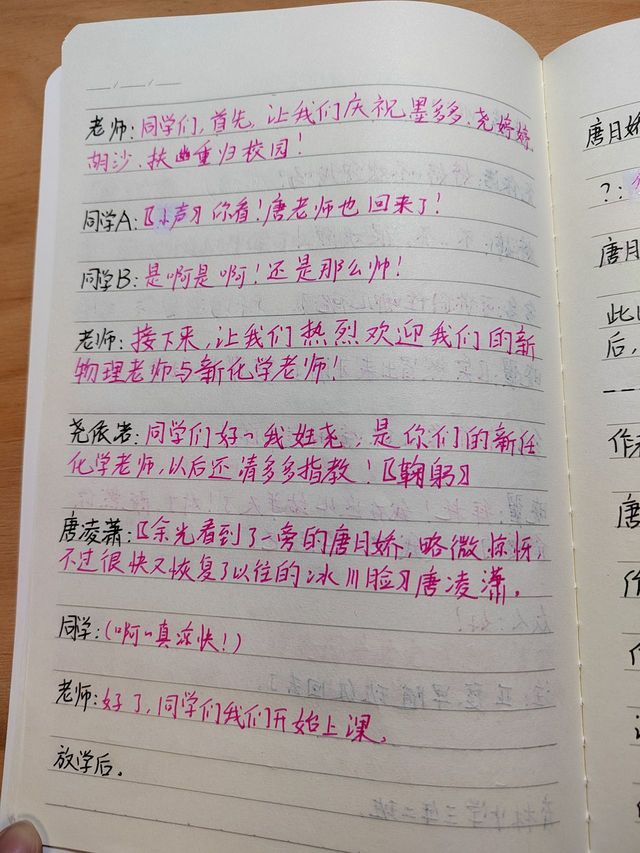 老师:同学们,首先,让我们庆祝墨多多、尧婷婷、
胡沙、扶幽重归校园!
同学A:〖小声〗你看!唐老师也回来了!
同学B:是啊是啊!还是那么帅!
老师:接下来,让我们热烈欢迎我们的新
物理老师与新化学老师!
尧依岩:同学们好~我姓尧,是你们的新任
化学老师,以后还请多多指教!〖鞠躬〗
唐凌萧:〖余光看到了一旁的唐月娇,略微惊讶,
不过很快又恢复了以往的冰川脸〗唐凌潇。
同学:(啊~真凉快!)
老师:好了,同学们我们开始上课。
放学后。
唐月娇
?:
唐月
此
后,
作
唐